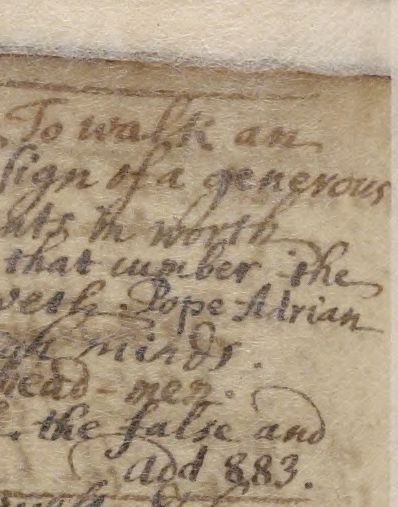 To walk an
sign of a generous
nts in worth
that cumber the
veth. Pope Adrian
gh minds.
head-men.
the false and
add 883.